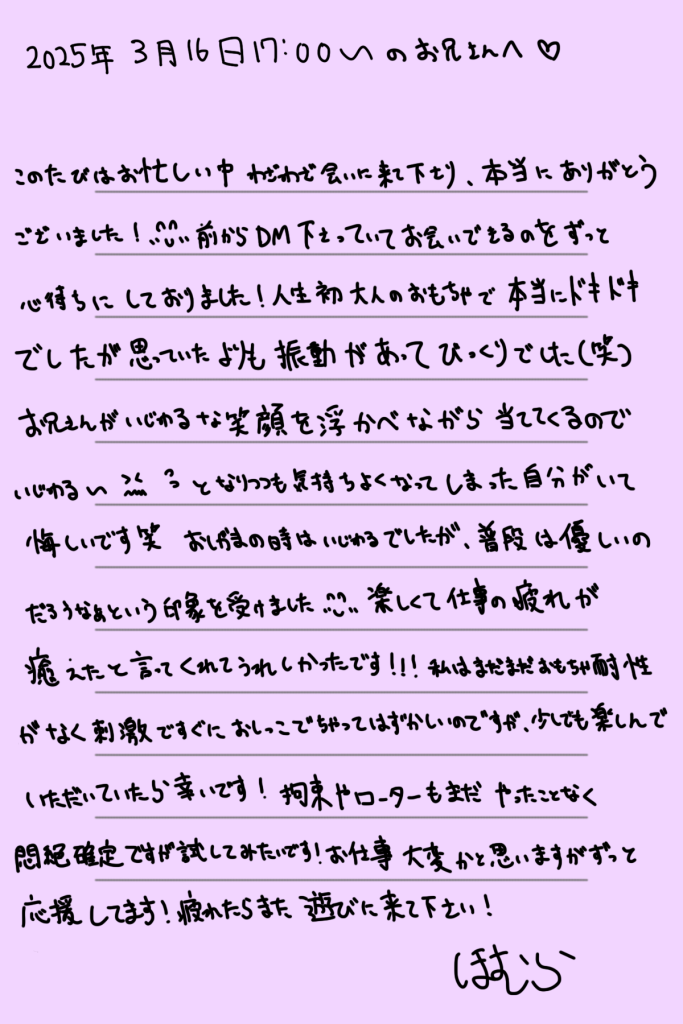 2025年 3月16日17:00〜のお兄さんへ♡
このたびはお忙しい中 わざわざ会いに来て下さり、本当にありがとう
ございました！ 前からDM下さっていてお会いできるのをずっと
心待ちにしておりました！人生初大人のおもちゃで本当にドキドキ
でしたが思っていたよりも振動があってびっくりでした(笑)
お兄さんがいじわるな笑顔を浮かべながら当ててくるので
いじわるぃ となりつつも気持ちよくなってしまった自分がいて
悔しいです笑 おしがまの時はいじわるでしたが、普段は優しいの
だろうなぁという印象を受けました 楽しくて仕事の疲れが
癒えたと言ってくれてうれしかったです！！！私はまだまだおもちゃ耐性
がなく刺激ですぐにおしっこでちゃってはずかしいのですが、少しでも楽しんで
いただいていたら幸いです！拘束やローターもまだ やったことなく
悶絶確定ですが試してみたいです！お仕事 大変かと思いますがずっと
応援してます！疲れたらまた 遊びに来て下さい！
ほむら